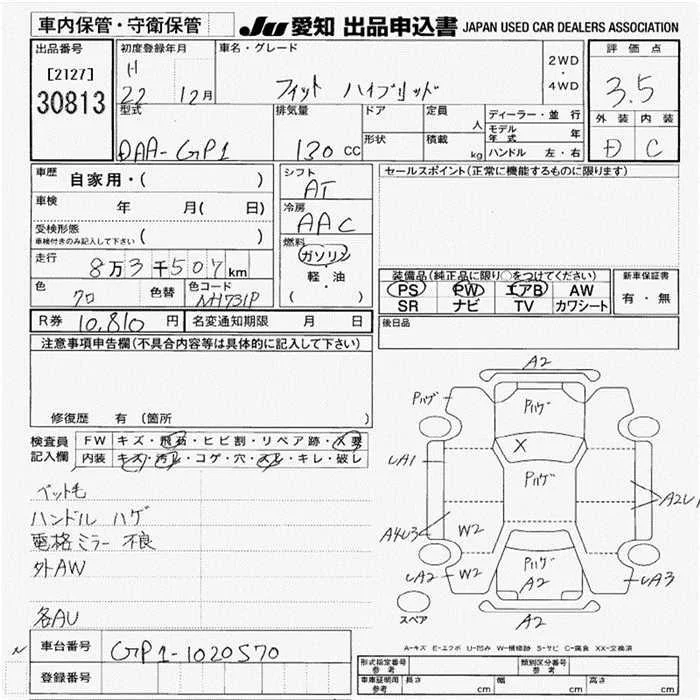 車内保管・守衛保管
JU 愛知 出品申込書 JAPAN USED CAR DEALERS ASSOCIATION
出品番号 [2127] 30813
初度登録年月 H 22 12月
車名・グレード フィット ハイブリッド
2WD・4WD
評価点 3.5
外装 内装
D C
型式 DAA-GP1
排気量 130 cc
ドア
形状
定員 人
積載 kg
ディーラー・並行
モデル年式 年
ハンドル 左・右
車歴 自家用・( )
車検 年 月( 日)
受検形態 車検付きのみ記入して下さい ( )
走行 8万3千507km
色 クロ 色替 色コード NH731P
シフト AT
冷房 AAC
燃料 ガソリン
軽・油
( )
セールスポイント(正常に機能するものに限ります)
装備品(純正品に限り○をつけてください)
PS PW エアB AW
SR ナビ TV カワシート
新車保証書
有・無
R券 10,810 円 名変通知期限 月 日
後日品
注意事項申告欄(不具合内容等は具体的に記入して下さい)
修復歴 有 (箇所 )
検査員記入欄
FW キズ・飛石・ヒビ割・リペア跡・X要
内装 キズ・汚レ・コゲ・穴・スレ・キレ・破レ
ペット毛
ハンドル ハゲ
電格ミラー 不良
外AW
各AU
A2
Pハゲ
Pハゲ
X
UA1
Pハゲ
A2U1
A4U3
W2
UA2
W2
Pハゲ
A2
UA3
A2
スペア
A-キズ E-エクボ U-凹み W-補修跡 S-サビ C-腐食 XX-交換済
N
車台番号 GP1-1020570
登録番号
形式指定番号 参考
類別区分番号 参考
車庫証明用 参考 長さ cm 幅 cm 高さ cm